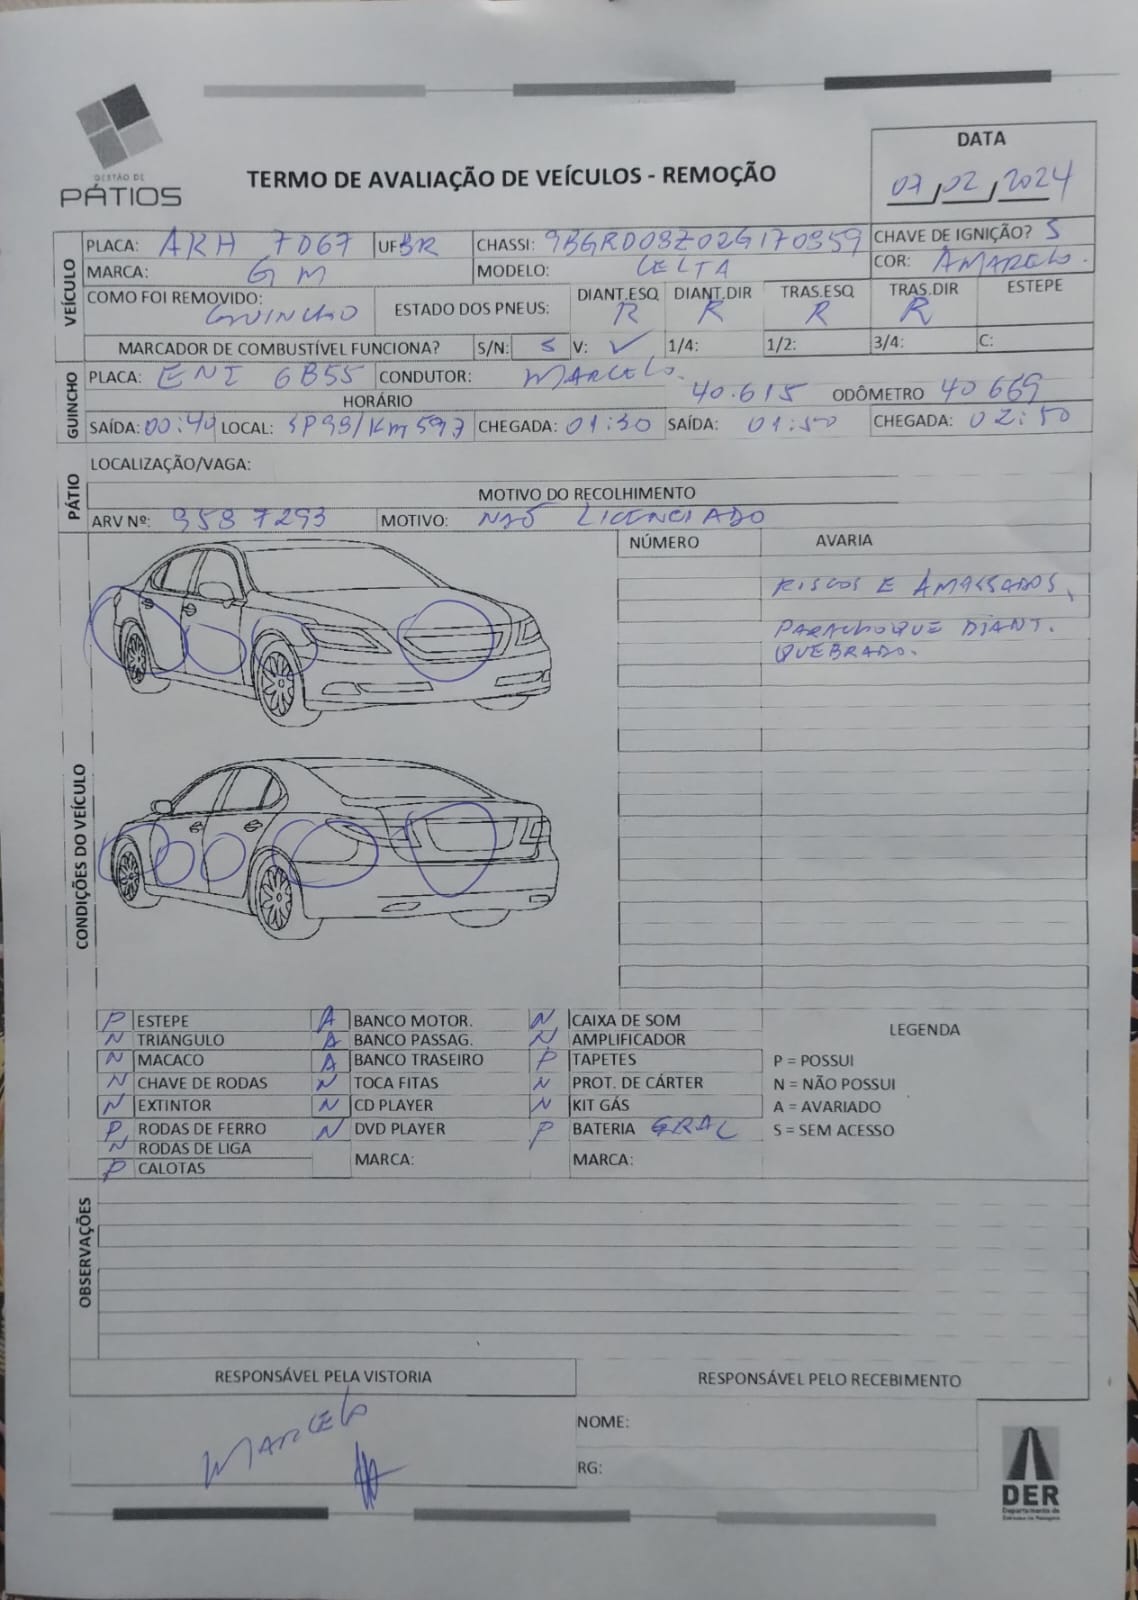 GESTÃO DE
PÁTIOS
TERMO DE AVALIAÇÃO DE VEÍCULOS - REMOÇÃO
DATA
07/02/2024
VEÍCULO
PLACA: ARH 7067 UF BR CHASSI: 9BGRD08Z02G170959 CHAVE DE IGNIÇÃO? S
MARCA: GM MODELO: CELTA COR: AMARELO.
COMO FOI REMOVIDO: GUINCHO ESTADO DOS PNEUS: DIANT.ESQ R DIANT.DIR R TRAS.ESQ R TRAS.DIR R ESTEPE
MARCADOR DE COMBUSTÍVEL FUNCIONA? S/N: S V: ✓ 1/4: 1/2: 3/4: C:
GUINCHO
PLACA: ENI 6B55 CONDUTOR: MARCELO.
HORÁRIO 40.615 ODÔMETRO 40 669
SAÍDA: 00:40 LOCAL: SP99/Km 597 CHEGADA: 01:30 SAÍDA: 01:50 CHEGADA: 02:50
PÁTIO
LOCALIZAÇÃO/VAGA:
MOTIVO DO RECOLHIMENTO
ARV Nº: 9587293 MOTIVO: NÃO LICENCIADO
CONDIÇÕES DO VEÍCULO
NÚMERO AVARIA
RISCOS E AMASSADOS,
PARACHOQUE DIANT.
QUEBRADO.
P ESTEPE A BANCO MOTOR. N CAIXA DE SOM
N TRIÂNGULO A BANCO PASSAG. N AMPLIFICADOR
N MACACO A BANCO TRASEIRO P TAPETES
N CHAVE DE RODAS N TOCA FITAS N PROT. DE CÁRTER
N EXTINTOR N CD PLAYER N KIT GÁS
P RODAS DE FERRO N DVD PLAYER P BATERIA GRAL
N RODAS DE LIGA MARCA: MARCA:
P CALOTAS
LEGENDA
P = POSSUI
N = NÃO POSSUI
A = AVARIADO
S = SEM ACESSO
OBSERVAÇÕES
RESPONSÁVEL PELA VISTORIA RESPONSÁVEL PELO RECEBIMENTO
MARCELO
NOME:
RG:
DER